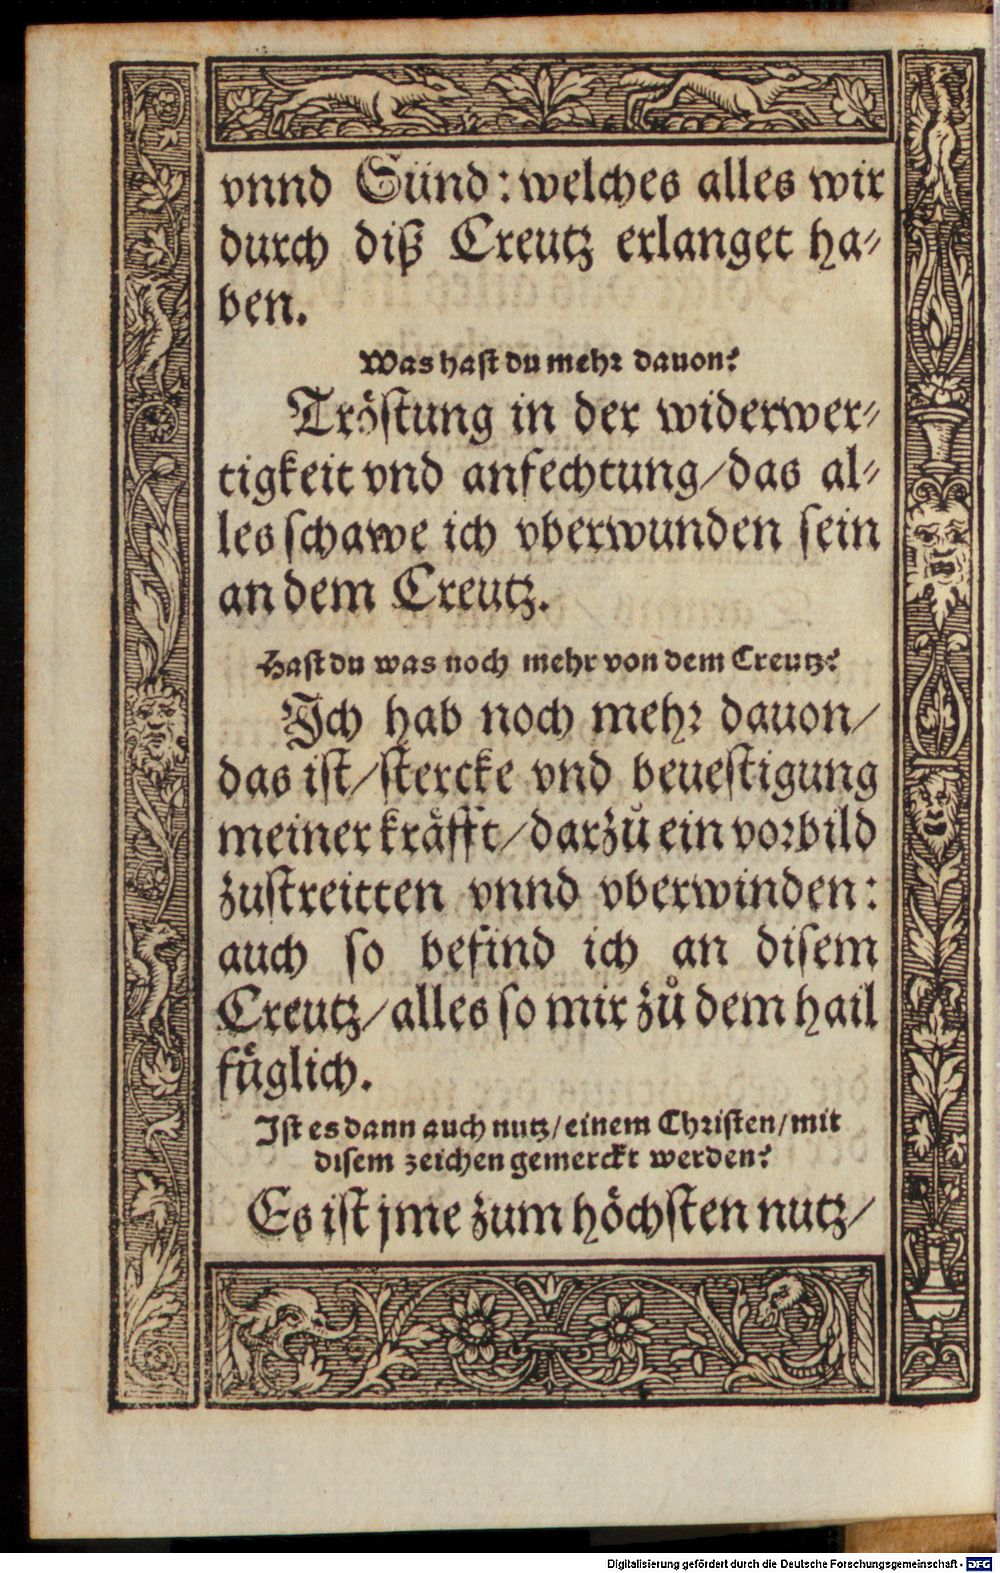 vnnd Sünd: welches alles wir
durch diß Creutz erlanget ha⸗
ben.
Was hast du mehr dauon?
Tröstung in der widerwer⸗
tigkeit vnd anfechtung/das al⸗
les schawe ich vberwunden sein
an dem Creutz.
Hast du was noch mehr von dem Creutz?
Ich hab noch mehr dauon/
das ist/stercke vnd beuestigung
meiner kräfft/darzů ein vorbild
zustreitten vnnd vberwinden:
auch so befind ich an disem
Creutz/alles so mir zů dem hail
füglich.
Ist es dann auch nutz/einem Christen/mit
disem zeichen gemerckt werden?
Es ist jme zum höchsten nutz/
Digitalisierung gefördert durch die Deutsche Forschungsgemeinschaft - DFG